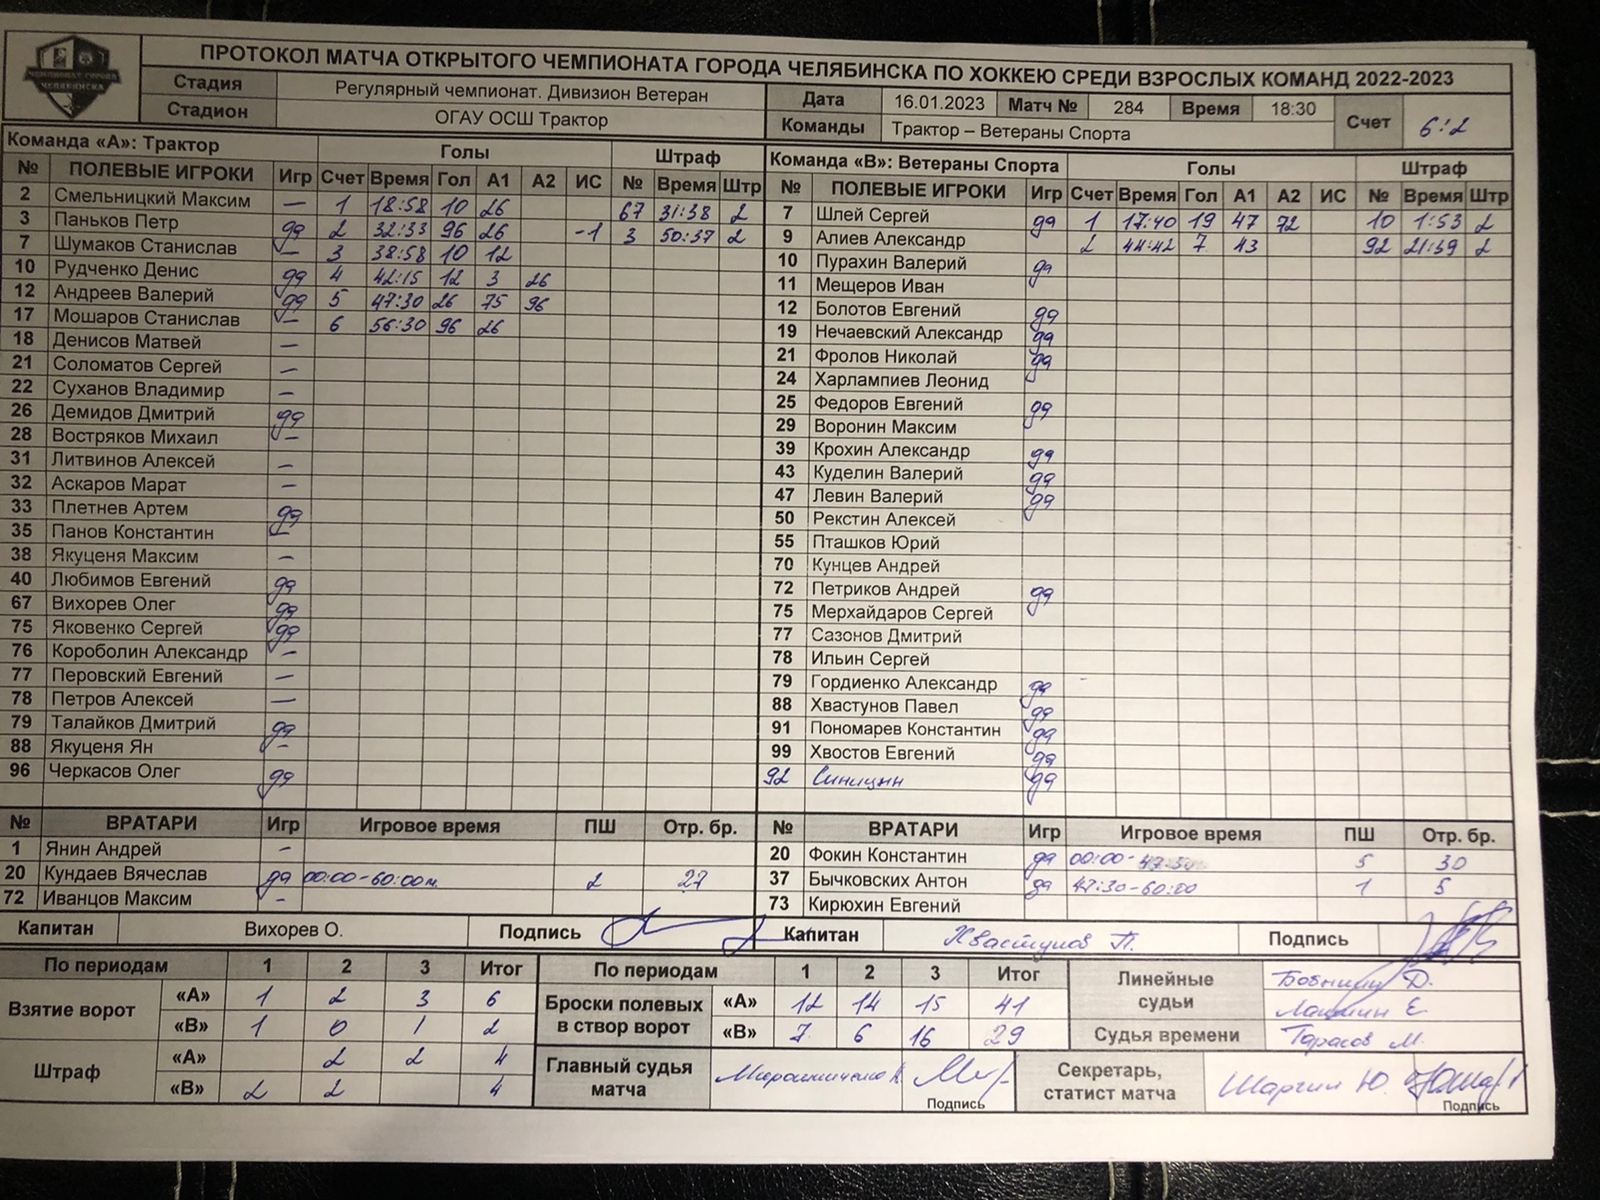 ЧЕМПИОНАТ ГОРОДА
ЧЕЛЯБИНСКА
ПРОТОКОЛ МАТЧА ОТКРЫТОГО ЧЕМПИОНАТА ГОРОДА ЧЕЛЯБИНСКА ПО ХОККЕЮ СРЕДИ ВЗРОСЛЫХ КОМАНД 2022-2023
Стадия Регулярный чемпионат. Дивизион Ветеран Дата 16.01.2023 Матч № 284 Время 18:30 Счет 6:2
Стадион ОГАУ ОСШ Трактор Команды Трактор – Ветераны Спорта
Команда «А»: Трактор Голы Штраф
№ ПОЛЕВЫЕ ИГРОКИ Игр Счет Время Гол А1 А2 ИС № Время Штр
2 Смельницкий Максим — 1 18:58 10 26 67 31:38 2
3 Паньков Петр да 2 32:33 96 26 -1 3 50:37 2
7 Шумаков Станислав — 3 38:58 10 12
10 Рудченко Денис да 4 42:15 12 3 26
12 Андреев Валерий да 5 47:30 26 75 96
17 Мошаров Станислав — 6 56:30 96 26
18 Денисов Матвей —
21 Соломатов Сергей —
22 Суханов Владимир —
26 Демидов Дмитрий да
28 Востряков Михаил —
31 Литвинов Алексей —
32 Аскаров Марат —
33 Плетнев Артем да
35 Панов Константин —
38 Якуценя Максим —
40 Любимов Евгений да
67 Вихорев Олег да
75 Яковенко Сергей да
76 Короболин Александр —
77 Перовский Евгений —
78 Петров Алексей —
79 Талайков Дмитрий да
88 Якуценя Ян —
96 Черкасов Олег да
№ ВРАТАРИ Игр Игровое время ПШ Отр. бр.
1 Янин Андрей —
20 Кундаев Вячеслав да 00:00-60:00 2 27
72 Иванцов Максим —
Капитан Вихорев О. Подпись
Команда «В»: Ветераны Спорта Голы Штраф
№ ПОЛЕВЫЕ ИГРОКИ Игр Счет Время Гол А1 А2 ИС № Время Штр
7 Шлей Сергей да 1 17:40 19 47 72 10 1:53 2
9 Алиев Александр 2 44:42 7 43 92 21:59 2
10 Пурахин Валерий да
11 Мещеров Иван
12 Болотов Евгений да
19 Нечаевский Александр да
21 Фролов Николай да
24 Харлампиев Леонид
25 Федоров Евгений да
29 Воронин Максим
39 Крохин Александр да
43 Куделин Валерий да
47 Левин Валерий да
50 Рекстин Алексей
55 Пташков Юрий
70 Кунцев Андрей
72 Петриков Андрей да
75 Мерхайдаров Сергей
77 Сазонов Дмитрий
78 Ильин Сергей
79 Гордиенко Александр да
88 Хвастунов Павел да
91 Пономарев Константин да
99 Хвостов Евгений да
92 Синицын да
№ ВРАТАРИ Игр Игровое время ПШ Отр. бр.
20 Фокин Константин да 00:00-47:30 5 30
37 Бычковских Антон да 47:30-60:00 1 5
73 Кирюхин Евгений
Капитан Хвастунов П. Подпись
По периодам 1 2 3 Итог
Взятие ворот «А» 1 2 3 6
«В» 1 0 1 2
Штраф «А» 2 2 4
«В» 2 2 4
По периодам 1 2 3 Итог
Броски полевых в створ ворот «А» 12 14 15 41
«В» 7 6 16 29
Главный судья матча Подпись
Линейные судьи Д.
Е.
Судья времени Тарасов М.
Секретарь, статист матча Шаргин Ю. Подпись